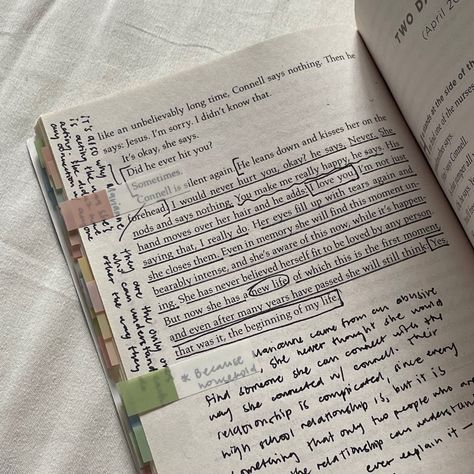 like an unbelievably long time, Connell says nothing. Then he
says: Jesus. I'm sorry. I didn't know that.
It's okay, she says.
Did he ever hit you?
Sometimes.
Connell is silent again. He leans down and kisses her on the
forehead. I would never hurt you, okay? he says. Never. She
nods and says nothing. You make me really happy, he says. His
hand moves over her hair and he adds: I love you. I'm not just
saying that, I really do. Her eyes fill up with tears again and
she closes them. Even in memory she will find this moment un-
bearably intense, and she's aware of this now, while it's happen-
ing. She has never believed herself fit to be loved by any person.
But now she has a new life, of which this is the first moment,
and even after many years have passed she will still think: Yes,
that was it, the beginning of my life.
* Because Marianne came from an abusive
household, she never thought she would
find someone she can connect with the
way she connected w/ connell. Their
relationship is complicated, since every
high school relationship is, but it is
something that only two people who are
the relationship can understand
ever explain it —
it's also why Marianne
they are the only one
who can understand
the way they
TWO D
(April 20
at the side of th
of the nurses
says Connell.